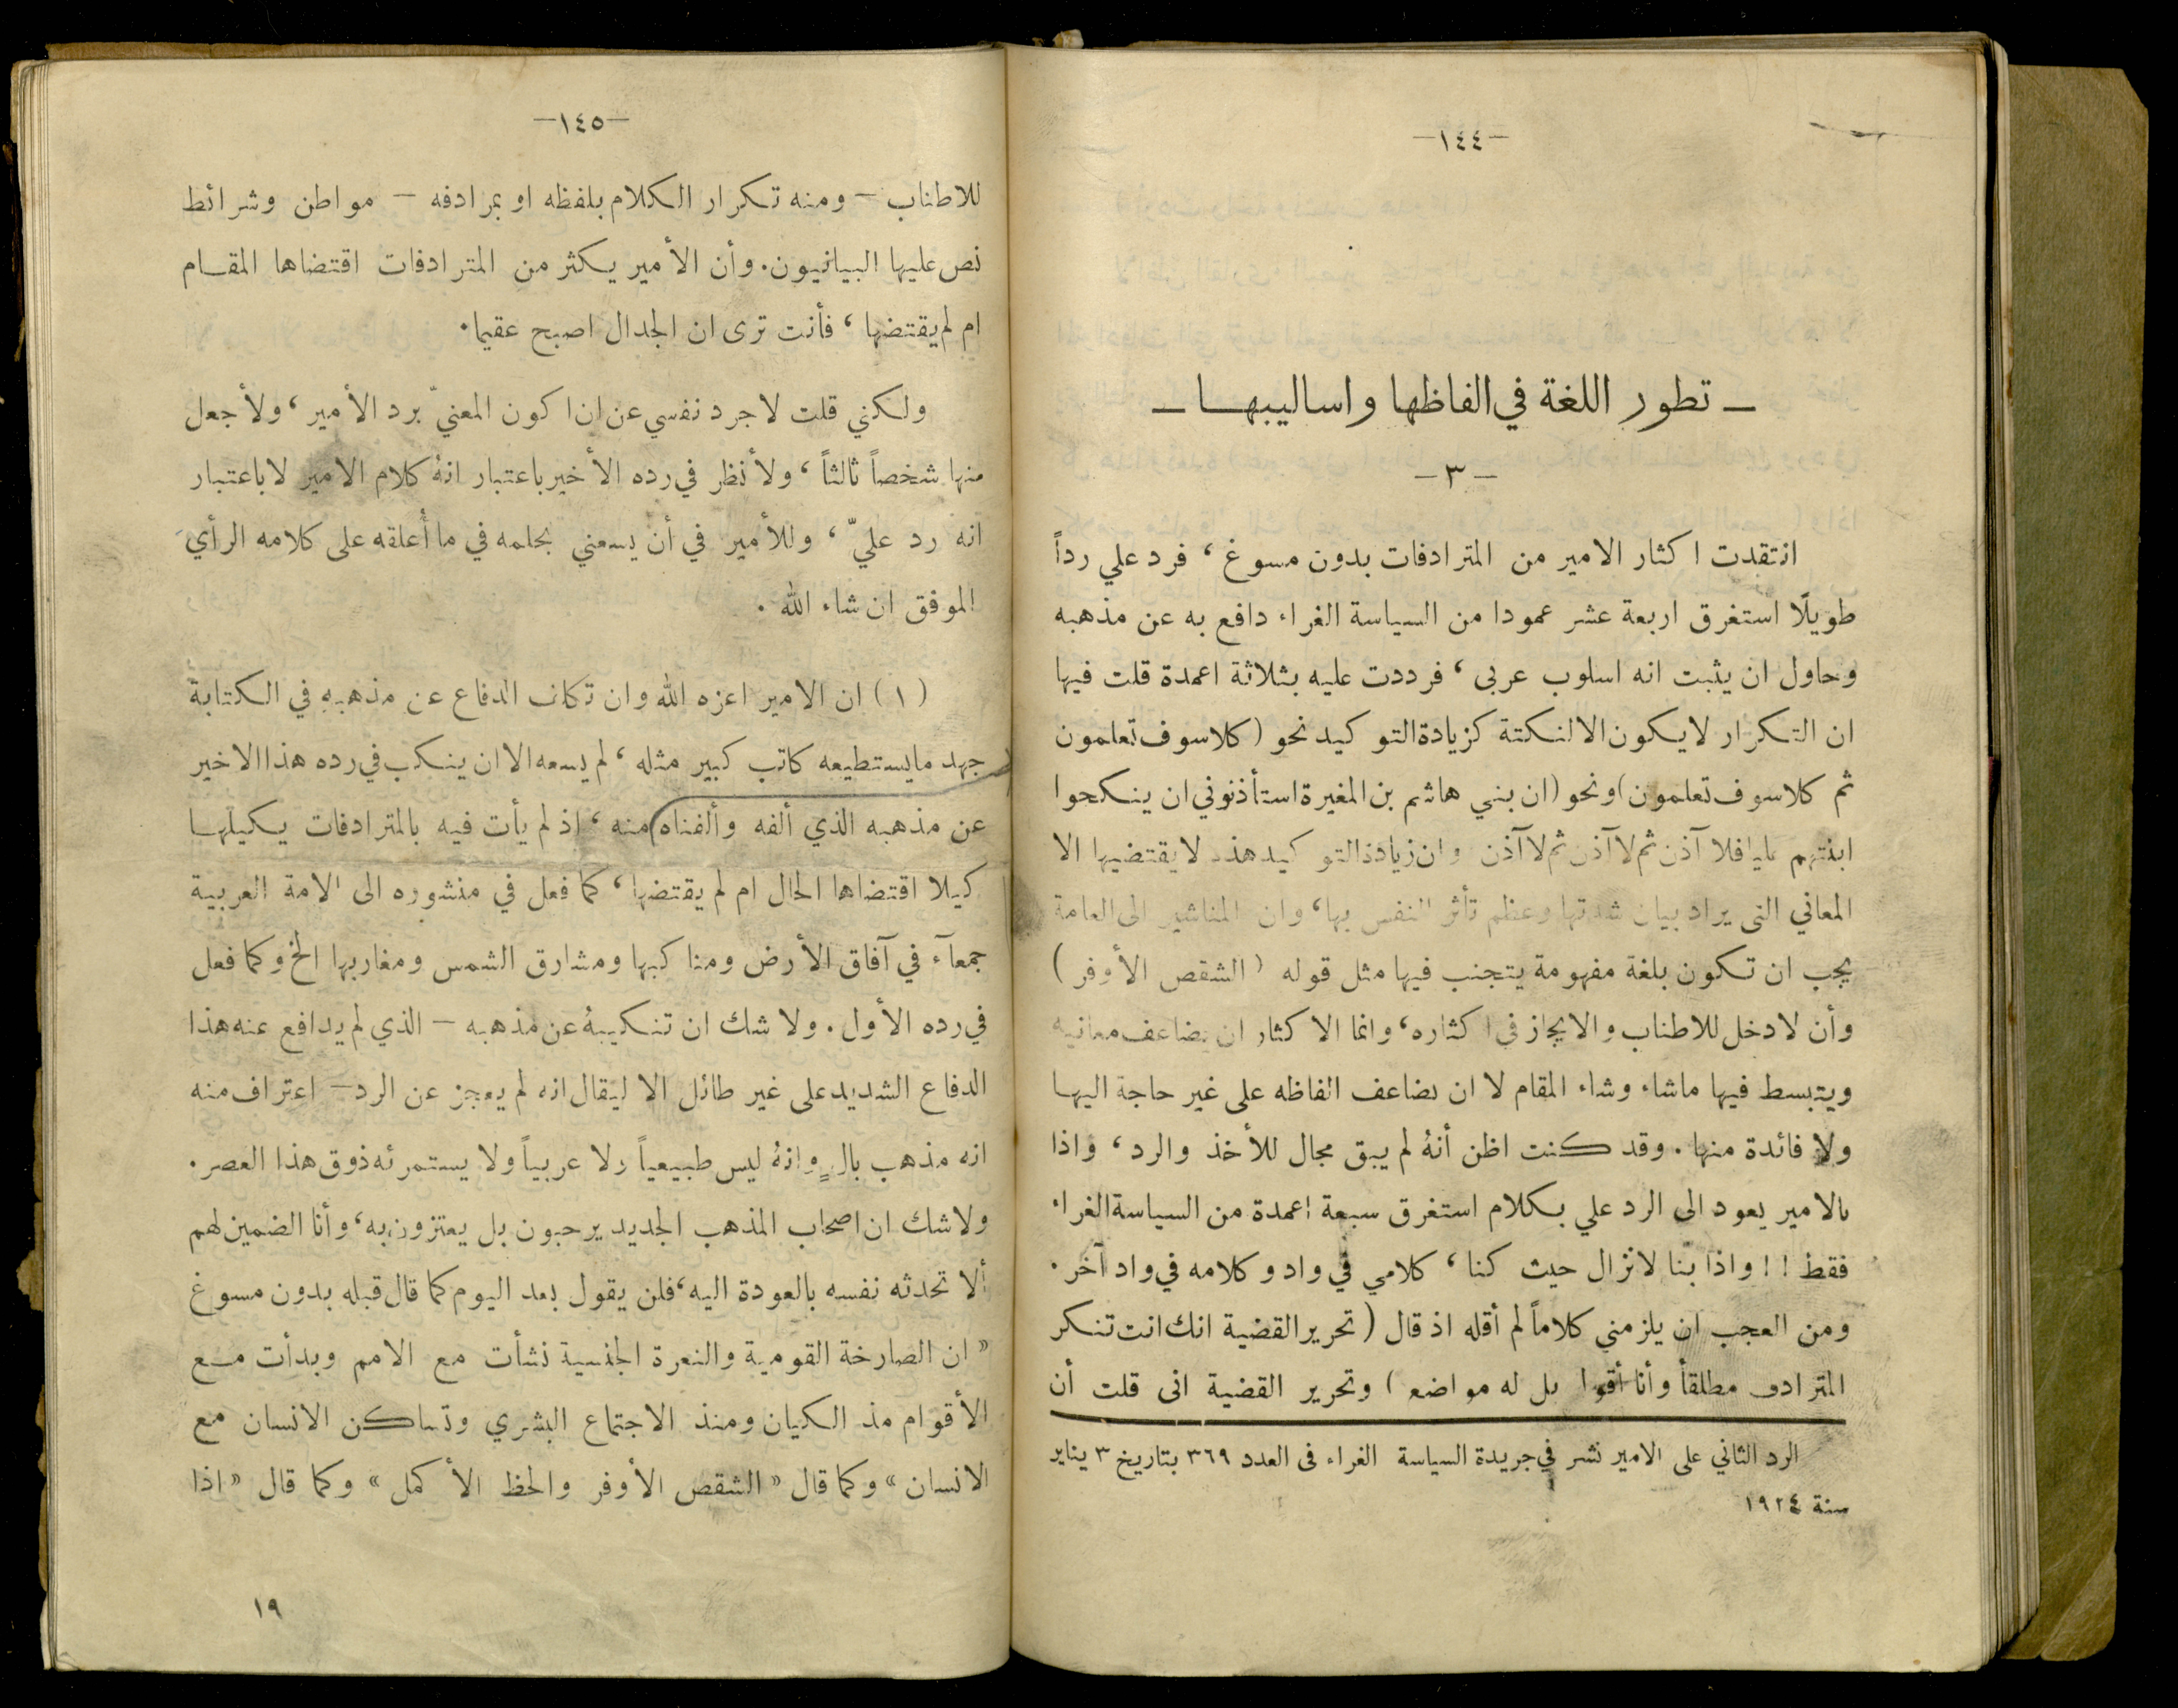 —١٤٤—
— تطور اللغة في الفاظها واساليبهـــا —
—٣—
انتقدت اكثار الامير من المترادفات بدون مسوغ ، فرد علي رداً
طويلًا استغرق اربعة عشر عمودا من السياسة الغراء دافع به عن مذهبه
وحاول ان يثبت انه اسلوب عربى ، فرددت عليه بثلاثة اعمدة قلت فيها
ان التكرار لايكون الا لنكتة كزيادة التوكيد نحو (كلا سوف تعلمون
ثم كلا سوف تعلمون) ونحو (ان بني هاشم بن المغيرة استأذنوني ان ينكحوا
ابنتهم عليا فلا آذن ثم لا آذن ثم لا آذن وان زيادة التوكيد هذه لا يقتضيها الا
المعاني التى يراد بيان شدتها وعظم تأثر النفس بها ، وان المناشير الى العامة
يجب ان تكون بلغة مفهومة يتجنب فيها مثل قوله (الشقص الأوفر)
وأن لادخل للاطناب والايجاز في اكثاره ، وانما الاكثار ان يضاعف معانيه
ويتبسط فيها ماشاء وشاء المقام لا ان يضاعف الفاظه على غير حاجة اليهـا
ولا فائدة منها . وقد كنت اظن أنهُ لم يبق مجال للأخذ والرد ، واذا
بالامير يعود الى الرد علي بكلام استغرق سبعة اعمدة من السياسة الغراء
فقط ! ! واذا بنا لانزال حيث كنا ، كلامي في واد وكلامه في واد آخر .
ومن العجب ان يلزمني كلاماً لم أقله اذ قال (تحرير القضية انك انت تنكر
المترادف مطلقاً وأنا أقول بل له مواضع ) وتحرير القضية انى قلت أن
الرد الثاني على الامير نشر في جريدة السياسة الغراء فى العدد ٣٦٩ بتاريخ ٣ يناير
سنة ١٩٢٤
—١٤٥—
للاطناب — ومنه تكرار الكلام بلفظه او بمرادفه — مواطن وشرائط
نص عليها البيانيون. وأن الأمير يكثر من المترادفات اقتضاها المقـام
ام لم يقتضها ، فأنت ترى ان الجدال اصبح عقيما.
ولكني قلت لاجرد نفسي عن ان اكون المعنيّ برد الأمير ، ولأجعل
منها شخصاً ثالثاً ، ولأنظر في رده الأخير باعتبار انهُ كلام الامير لا باعتبار
انه رد عليّ ، وللأمير في أن يسعني بحلمه في ما أعلقه على كلامه الرأي
الموفق ان شاء الله .
(١) ان الامير اعزه الله وان تكلف الدفاع عن مذهبهِ في الكتابة
جهد مايستطيعه كاتب كبير مثله ، لم يسعه الا ان ينكب في رده هذا الاخير
عن مذهبه الذي ألفه وألفناه منه ، اذ لم يأت فيه بالمترادفات يكيلهـا
كيلا اقتضاها الحال ام لم يقتضها ، كما فعل في منشوره الى الامة العربية
جمعآء في آفاق الأرض ومناكبها ومشارق الشمس ومغاربها الخ وكما فعل
في رده الأول . ولا شك ان تنكيبهُ عن مذهبه — الذي لم يدافع عنه هذا
الدفاع الشديد على غير طائل الا ليقال انه لم يعجز عن الرد — اعتراف منه
انه مذهب بالٍ وانهُ ليس طبيعياً ولا عربياً ولا يستمرئه ذوق هذا العصر.
ولا شك ان اصحاب المذهب الجديد يرحبون بل يعتزون به ، وأنا الضمين لهم
ألا تحدثه نفسه بالعودة اليه ، فلن يقول بعد اليوم كما قال قبله بدون مسوغ
« ان الصارخة القومية والنعرة الجنسية نشأت مع الامم وبدأت مـع
الأقوام مذ الكيان ومنذ الاجتماع البشري وتساكن الانسان مع
الانسان » وكما قال « الشقص الأوفر والحظ الأكمل » وكما قال « اذا
١٩